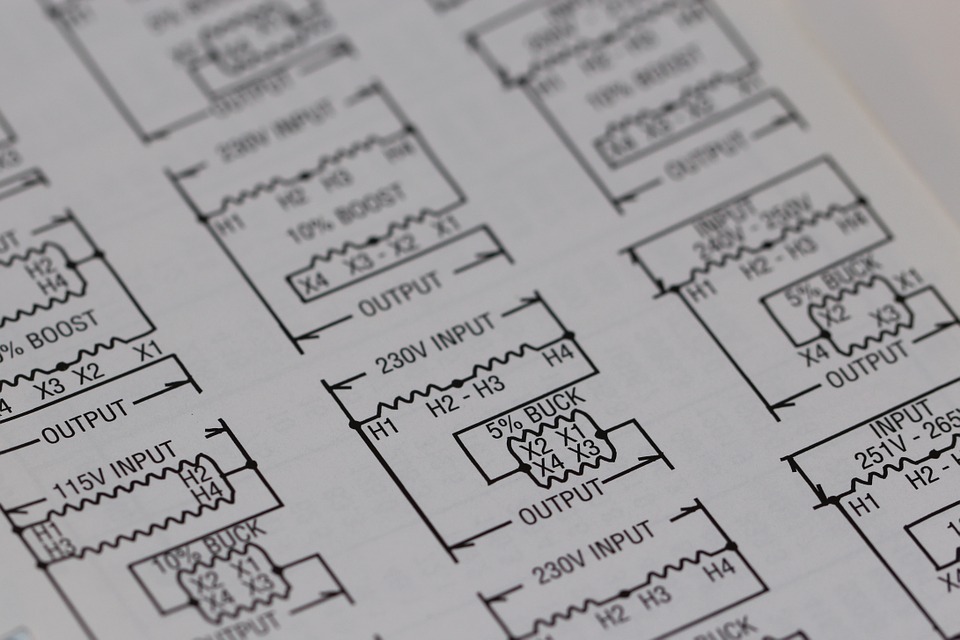 OUTPUT
10% BOOST
X4 X3 - X2
OUTPUT
230V INPUT
H1 H2 H3 H4
10% BOOST
X4 X3 - X2 X1
OUTPUT
INPUT
240V - 250V
H1 H2 - H3 H4
5% BUCK
X2 X3 X1
X4
OUTPUT
H2
H4
BOOST
X3 X2 X1
OUTPUT
230V INPUT
H1 H2 - H3 H4
5% BUCK
X2 X1
X4 X3
OUTPUT
INPUT
251V - 265V
H1 H2 -
115V INPUT
H1 H2
H3 H4
10% BUCK
X2 X1
X4 X3
OUTPUT
230V INPUT
H2 H3 H4
BUCK